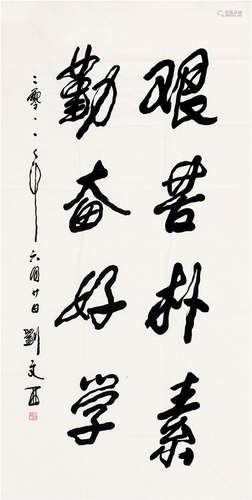 艰苦朴素
勤奋好学
二零一一年六月廿日刘文西